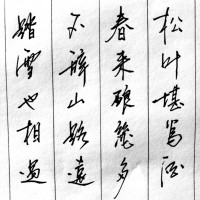 松叶堪为酒
春来酿几多
不辞山路远
踏雪也相过